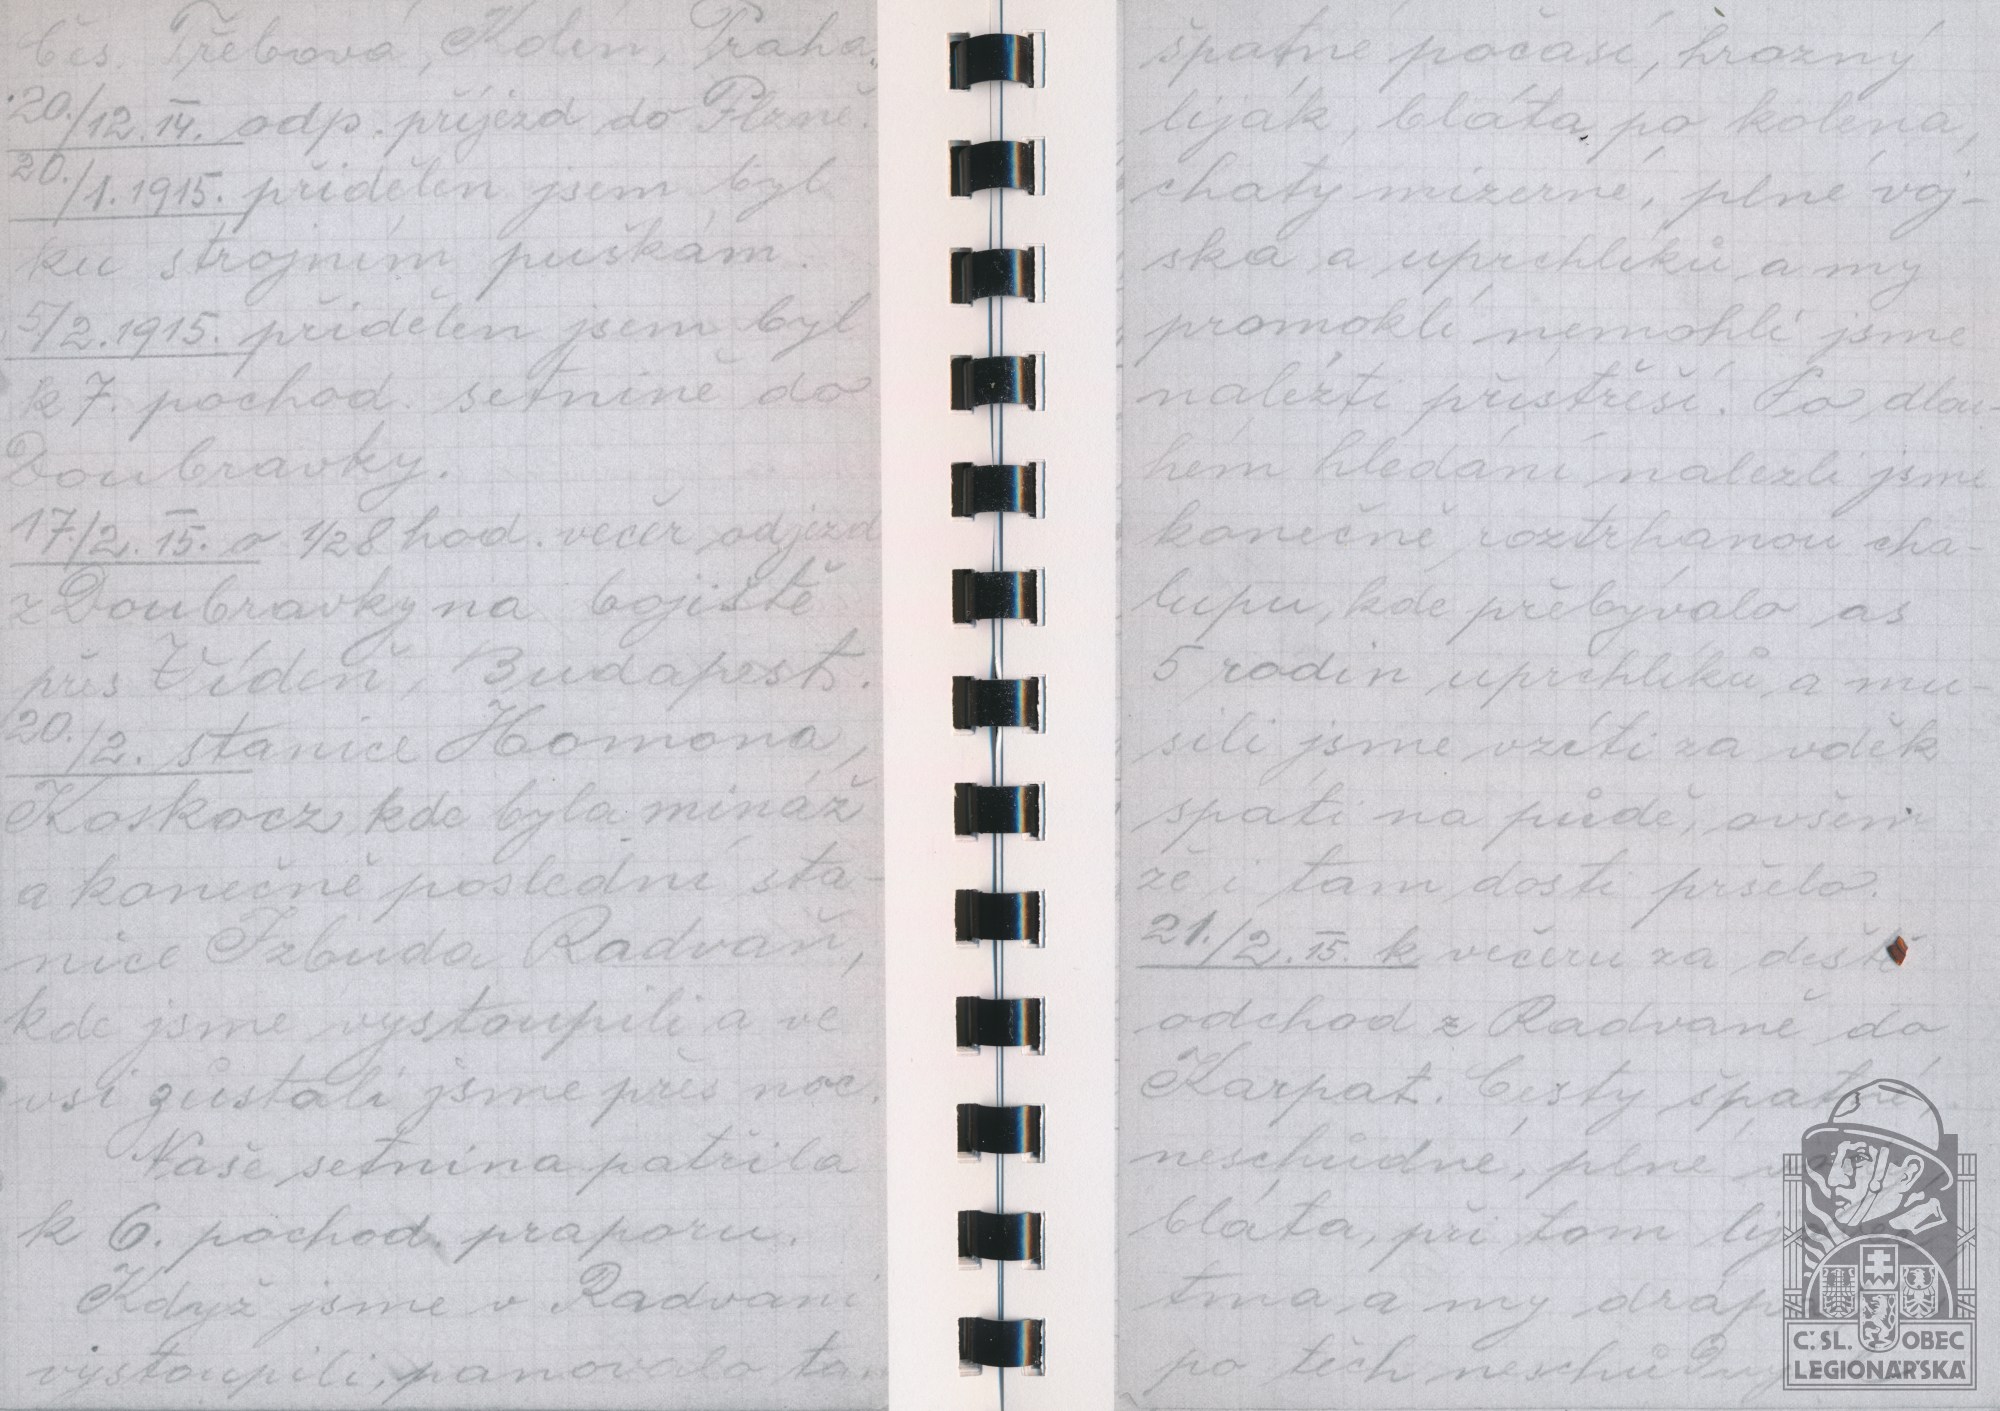 čes. Třebová, Kolín, Praha.
20./12. 14. odp. příjezd do Plzně.
20./1. 1915. přidělen jsem byl
ku strojním puškám.
5/2. 1915. přidělen jsem byl
k 7. pochod. setnině do
Doubravky.
17./2. 15. o 1/28 hod. večer odjezd
z Doubravky na bojiště
přes Vídeň, Budapest.
20./2. stanice Homona,
Koskocz kde byla mináž
a konečně poslední sta-
nice Izbuda Radvaň,
kde jsme vystoupili a ve
vsi zůstali jsme přes noc.
Naše setnina patřila
k 6. pochod. praporu.
Když jsme v Radvani
vystoupili, panovalo tam
špatné počasí, hrozný
liják, bláta po kolena,
chaty mizerné, plné voj-
ska a uprchlíků a my
promoklí nemohli jsme
nalézti přístřeší. Po dlou-
hém hledání nalezli jsme
konečně roztrhanou cha-
lupu, kde přebývalo as
5 rodin uprchlíků a mu-
sili jsme vzíti za vděk
spáti na půdě, ovšem
že i tam dosti pršelo.
21./2. 15. k večeru za deště
odchod z Radvaně do
Karpat. Cesty špatné,
neschůdné, plné
bláta, při tom
tma a my
po těch
Č. SL. OBEC
LEGIONÁŘSKÁ